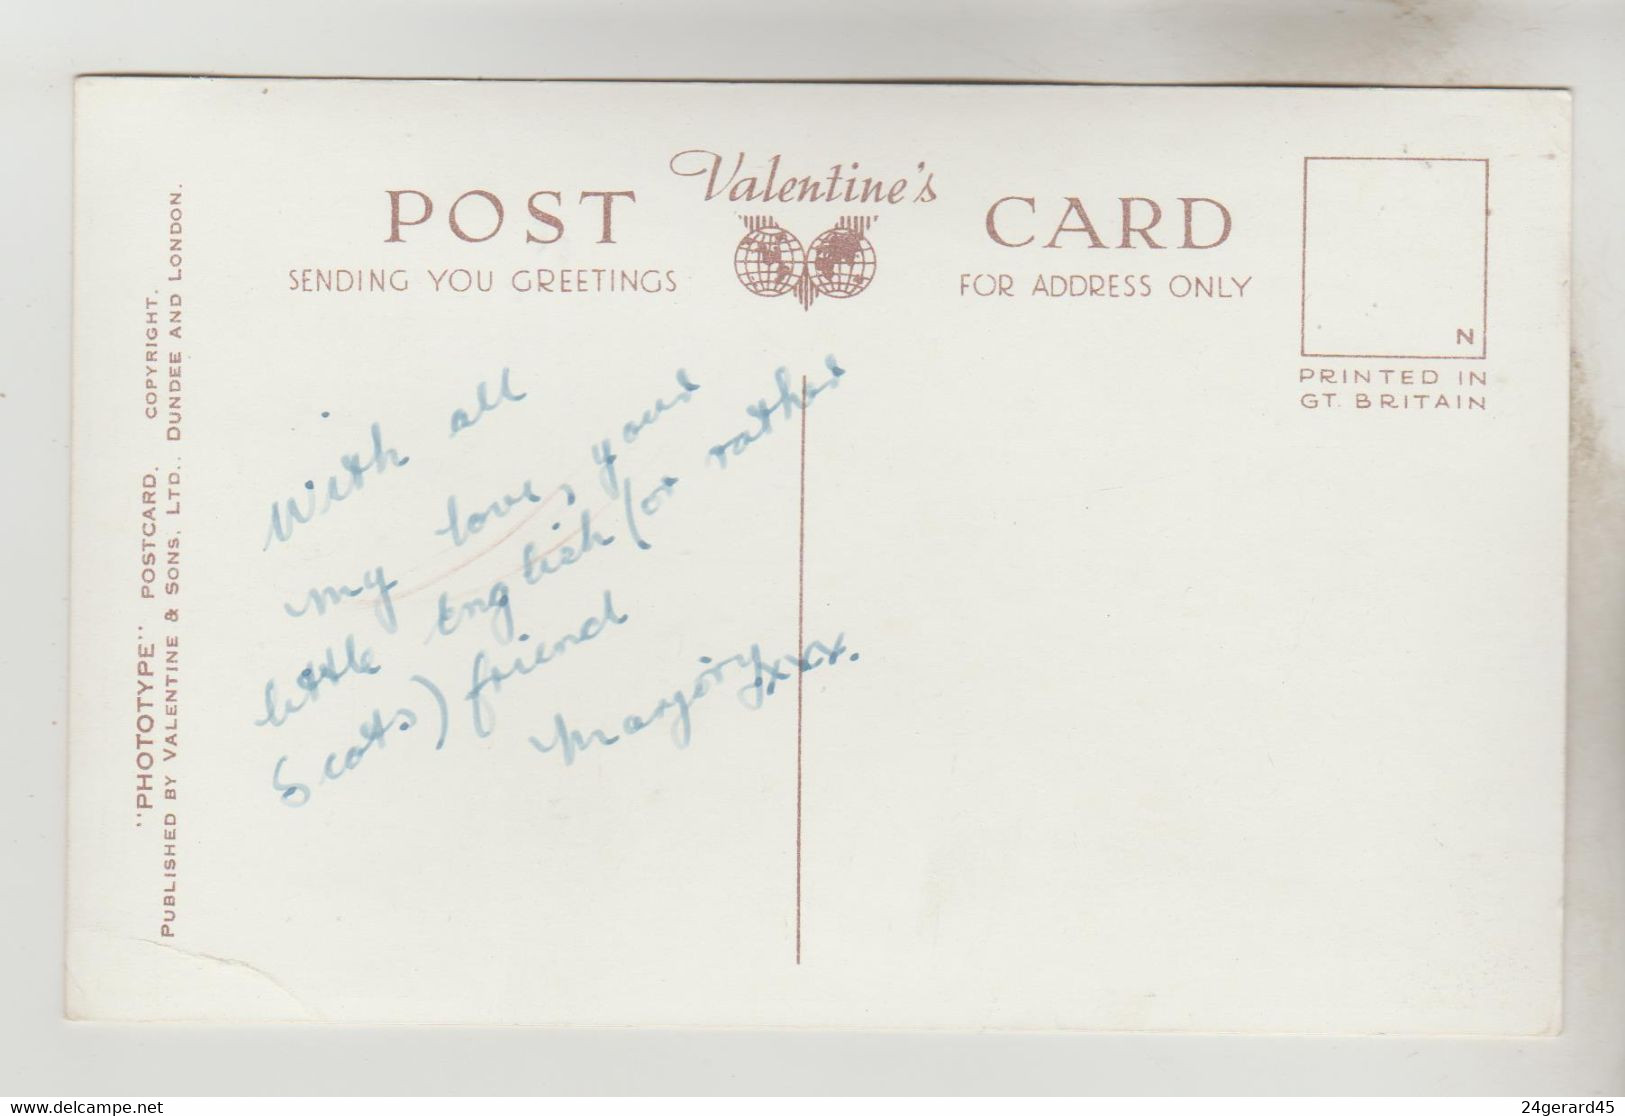 Valentine's
POST CARD
SENDING YOU GREETINGS
FOR ADDRESS ONLY
N
PRINTED IN
GT. BRITAIN
"PHOTOTYPE" POSTCARD. COPYRIGHT.
PUBLISHED BY VALENTINE & SONS, LTD., DUNDEE AND LONDON.
With all
my love, your
little English (or rather
Scots) friend
Marjory xxx.
www.delcampe.net
24gerard45